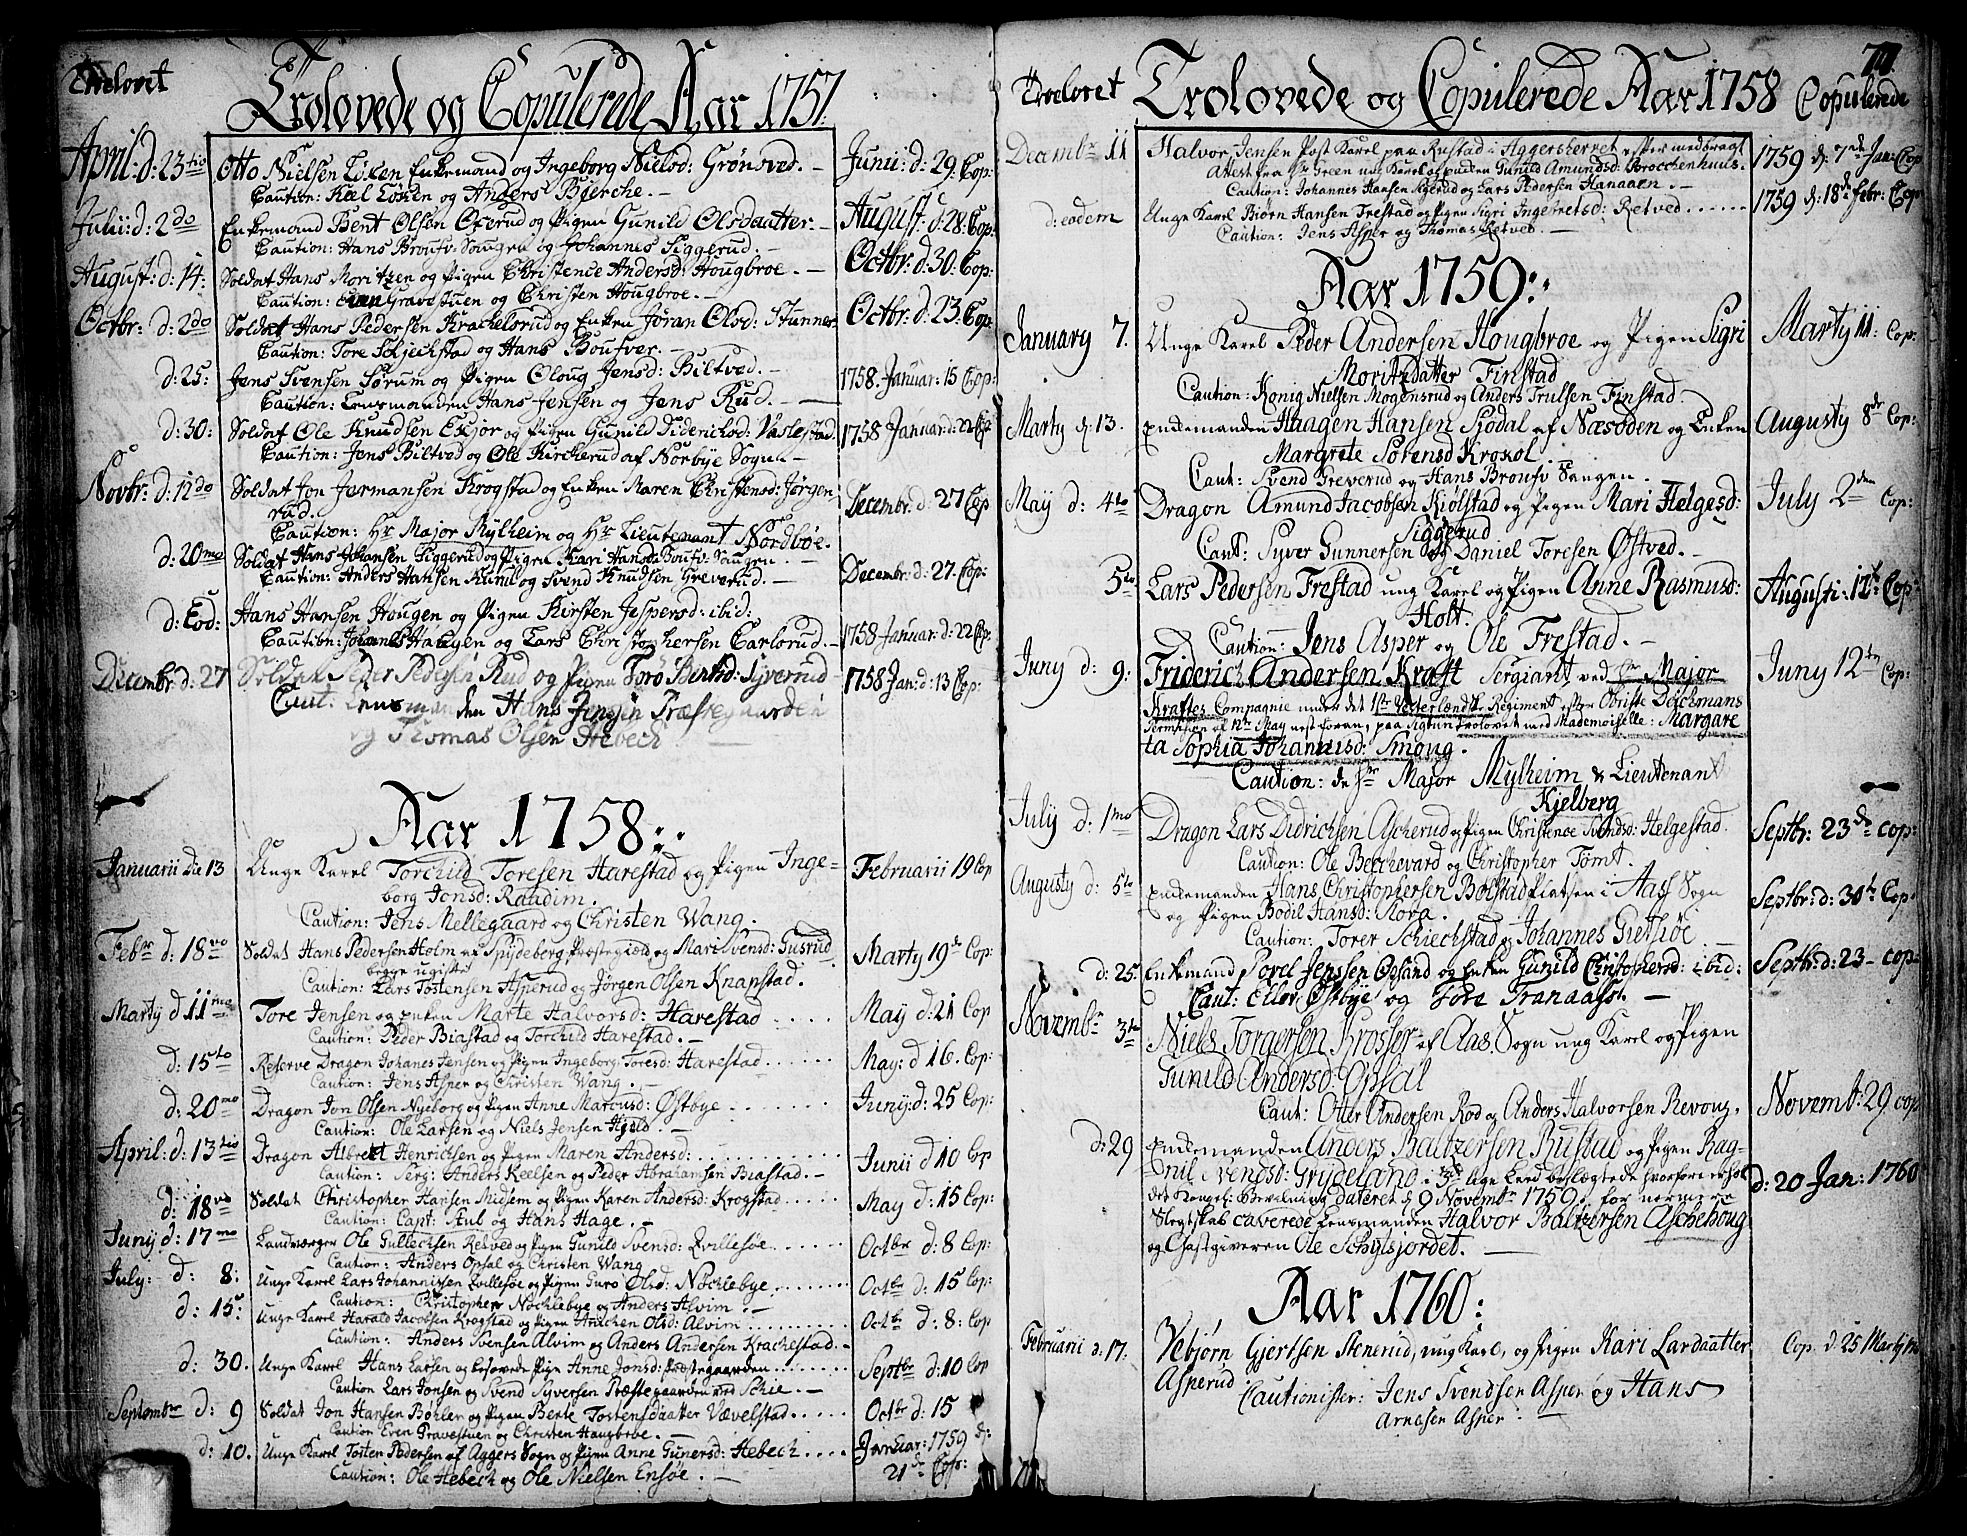 Troelovet
Trolovede og Copulerede Aar 1757.
April: d: 23tio Otto Nielsen Løken Enkemand og Ingeborg Nielsd: Grønsved. — Junii: d: 29. Cop:
Caution: Kiel Løken og Anders Bierche. —
Julii: d: 2do Enkemand Bent Olsen Oxerud og Pigen Gunild Olsdaatter. — August: d: 28. Cop:
Caution: Hans Broufv: Saugen og Johannes Siggerud. —
August: d: 14. Soldat Hans Moritzen og Pigen Christence Andersd: Hougbroe. — Octbr: d: 30. Cop:
Caution: Even Gravestuen og Christen Hougbroe. —
Octbr: d: 2do Soldat Hans Pedersen Krachelsrud og Enken Jøran Olsd: Stunner Octbr: d: 23. Cop:
Caution: Tore Schjechstad og Hans Boufver. —
d: 25: Jens Svensen Sørum og Pigen Oloug Jensd: Biltved. — 1758. Januar: 15 Cop:
Caution: Lensmanden Hans Jensen og Jens Rud. —
d: 30: Soldat Ole Knudsen Exjor og Pigen Gunild Diderichsd: Vaslestad 1758 Januar: d: 22 Cop
Caution: Jens Biltved og Ole Kircherud af Norbye Sogn. —
Novbr: d: 12do Soldat Jon Jermansen Krogstad og Enken Maren Christensd: Jørgen
rud. Decembr: d: 27 Cop
Caution: Hr Major Mylheim og Hr Lieutenant Nordboe.
d: 20mo Soldat Hans Johansen Siggerud og Pigen Kari Hansd: Boufv: Saugen. — Decembr: d: 27. Cop:
Caution: Anders Hansen Kuml og Svend Knudsen Greverud. —
d: Eod: Hans Hansen Hougen og Pigen Kirsten Jespersd: ibid: 1758 Januar: d: 22 Cop:
Caution: Johannes Haugen og Lars Christophersen Carlsrud. —
Decembr: d: 27 Soldat Peder Pedersen Rud og Pigen Torø Bentsd: Syverud 1758 Jan: d: 13 Cop:
Caut: Lensmanden Hans Jensen Præstegaarden
og Thomas Olsen Hebech —
Aar 1758:
Januarii die 13 Unge Karel Torchild Toresen Harestad og Pigen Inge- Februarii 19 Cop
borg Jonsd: Raudim.
Caution: Jens Mellegaard og Christen Wang.
Febr d: 18vo Soldat Hans Pedersen Holm af Spydeberg Præstegield og Mari Svensd: Gusrud Marty 19de Cop:
begge ugifte
Caution: Lars Tostensen Asperud og Jørgen Olsen Knapstad.
Marty d 11mo Tore Jensen og Enken Marte Halvorsd: Harestad May d: 21 Cop
Caution: Peder Biastad og Torchild Harestad. —
d: 15to Reserve Dragon Johanes Jensen og Pigen Ingeborg Toresd: Harestad May: d 16. Cop:
Caution: Jens Asper og Christen Wang. —
d: 20mo Dragon Jon Olsen Nyeborg og Pigen Anne Marcusd: Østbye Junij: d: 25 Cop:
Caution: Ole Larsen og Niels Jensen Hield —
April: d: 13tio Dragon Albrett Henrichsen og Pigen Maren Andersd: Junii d 10 Cop
Caution: Serg: Anders Keelsen og Peder Abrahamsen Biastad. —
d: 18vo Soldat Christopher Hansen Midsem og Pigen Karen Andersd: Krogstad May d: 15 Cop:
Caution: Capt: Stul og Hans Hage. —
Junij d: 17mo Landværger Ole Gullechsen Retved og Pigen Gunild Svensd: Qvillesøe Octbr d: 8 Cop:
Caution: Anders Opsal og Christen Wang
July: d: 8: Unge Karel Lars Johannissen Qvillesøe og Pigen Guro Olsd: Nøchlebye Octbr d: 15 Cop:
Caution: Christopher Nøchlebye og Anders Alvim. —
d: 15. Unge Karel Harald Jacobsen Krogstad og Pigen Anichen Olsd: Alvim Octbr d: 8: Cop
Caution: Anders Svensen Alvim og Anders Andersen Krachestad. —
d: 30. Unge Karel Hans Larsen og besovede Pige Anne Jonsd: Præstegaarden Septbr d: 10 Cop
Caution Lars Jonsen og Svend Syversen Præstegaarden ved Schie. —
Septembr d: 9 Soldat Jon Hansen Bøhler og Pigen Berte Tostensdaatter Vævelstad Octbr d: 15
Caution Even Gravestuen og Christen Haugbroe. —
d: 10. Unge Karel Tosten Pedersen af Aggers Sogn og Pigen Anne Gunersd: Hebech Januar: 1759 d:
21de Cop:
Caution: Ole Hebech og Ole Nielsen Ensøe. —
Troelovet Trolovede og Copulerede Aar 1758 Copulerede
Decembr 11 Halvor Jensen Post Karel paa Rustad i Aggersherret efter medbragt 1759 d: 7de Jan: Cop
Attest fra Hr Green ung Karel og Enken Gunild Amundsd: Brocchenhuus.
Caution: Johannes Hansen Kjerud og Lars Pedersen Hanaaen. —
d: eodem Unge Karel Biørn Hansen Frestad og Pigen Sigri Ingebretsd: Retved 1759 d: 18de Febr: Cop:
Caution: Jens Asper og Thomas Retved. —
Aar 1759:
January 7. Unge Karel Peder Andersen Hougbroe og Pigen Sigri Marty 11: Cop:
Moritzdatter Finstad
Caution: Konig Nielsen Mogensrud og Anders Trulsen Finstad.
Marty d: 13. Enckemanden Haagen Hansen Siødal af Næsodden og Enken Augusty 8de Cop:
Margrete Sørensd Kroxol.
Caut: Svend Greverud og Hans Broufv Saugen.
May d: 4to Dragon Amund Jacobsen Kiølstad og Pigen Mari Helgesd: July 2den Cop:
Siggerud
Caut: Syver Gunnersen og Daniel Toresen Østved. —
5to Lars Pedersen Frestad ung Karel og Pigen Anne Rasmusd: Augusti: 12te Cop:
Holt.
Caution: Jens Asper og Ole Frestad. —
Juny d: 9: Friderich Andersen Kraft Sergiant ved Hr Major Juny 12te Cop:
Kraftes Compagnie under det 1ste Vesterlandske Regiment efter Obriste Dechmans
Permission af 12te May nest foran, paa Sigtun trolovet med Mademoiselle: Margare
ta Sophia Johannisd: Smoug.
Caution: de Hr Major Mylheim & Lieutenant
Kjelberg
July d: 1mo Dragon Lars Didrichsen Ascherud og Pigen Christence Svendsd: Helgestad. Septbr: 23de Cop:
Caution: Ole Bechevard og Christopher Tømt.
Augusty d: 5to Enckemanden Hans Christophersen Bølstad Pladsen i Aass Sogn Septbr: d: 30te Cop:
og Pigen Bodil Hansd: Nora.
Caution: Torer Schiechstad og Johannes Gietsiøe —
d: 25. Enckmand Povel Jenssen Gesand og Enken Gunild Christophersd: ibid: Septbr: d: 23 - Cop:
Caut: Eller Østbye og Tore Tranaass. —
Novembr 3te Niels Torgersen Krosser af Aas Sogn ung Karel og Pigen
Gunild Andersd: Opsal Novemb: 29 Cop
Caut: Otter Andersen Rod og Anders Halvorsen Revoug.
d: 29 Enckemanden Anders Baltzersen Rustad og Pigen Rag-
nil Svendsd: Grydeland i 3die lige Leed beslegtede hvorfore erholdt d: 20 Jan: 1760
det Kongel: Bevilning dateret d 9 Novembr 1759. for nermere
Slegtskab caverede Lensmanden Halvor Baltzersen Aschehoug
og Giastgiveren Ole Schytsjordet. —
Aar 1760:
Februarii d: 17. Vebjørn Gjertsen Stenerud, ung Karl, og Pigen Kari Larsdaatter Cop. d. 25 Martij
Asperud Cautionister: Jens Svendsen Asper og Hans
Arnesen Asper. —